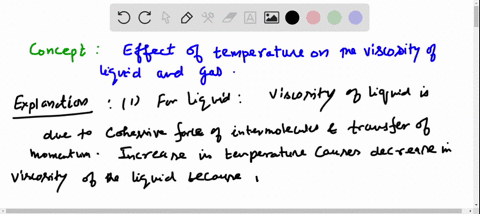 Concept : Effect of temperature on the viscosity of
liquid and gas .
Explanation : (1) For liquid : Viscosity of liquid is
due to Cohessive force of intermolecules & transfer of
momentum . Increase in temperature causes decrease in
viscosity of the liquid because